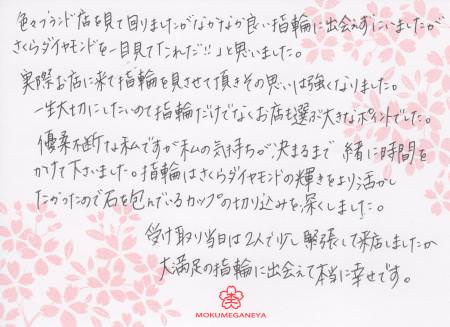 色々ブランド店を見て回りましたがなかなか良い指輪に出会えずにいましたが
さくらダイヤモンドを一目見て「これだ!!」と思いました。
実際お店に来て指輪を見させて頂きその思いは強くなりました。
一生大切にしたいので指輪だけでなくお店も選ぶ大きなポイントでした。
優柔不断な私ですが私の気持ちが決まるまで一緒に時間を
かけて下さいました。指輪はさくらダイヤモンドの輝きをより活か
したかったので石を包んでいるカップの切り込みを深くしました。
受け取り当日は2人で少し緊張して来店しましたが
大満足の指輪に出会えて本当に幸せです。
MOKUMEGANEYA